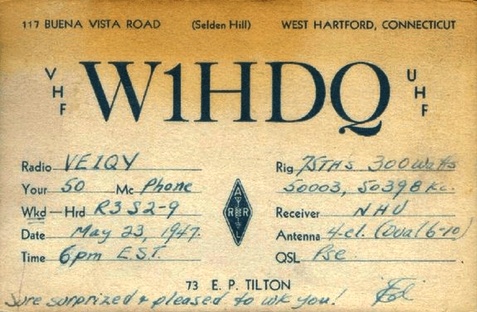 117 BUENA VISTA ROAD (Selden Hill) WEST HARTFORD, CONNECTICUT
VHF W1HDQ UHF
Radio VE1QY Rig 75THs 300 watts
Your 50 Mc Phone 50003, 50398 Kc.
Wkd — Hrd R3 S2-9 Receiver NHU
Date May 23, 1947. Antenna 4-el. (Dual 6-10)
Time 6pm E.S.T. QSL Pse.
ARRL
73 E. P. TILTON
Sure surprized & pleased to wk you! Ed